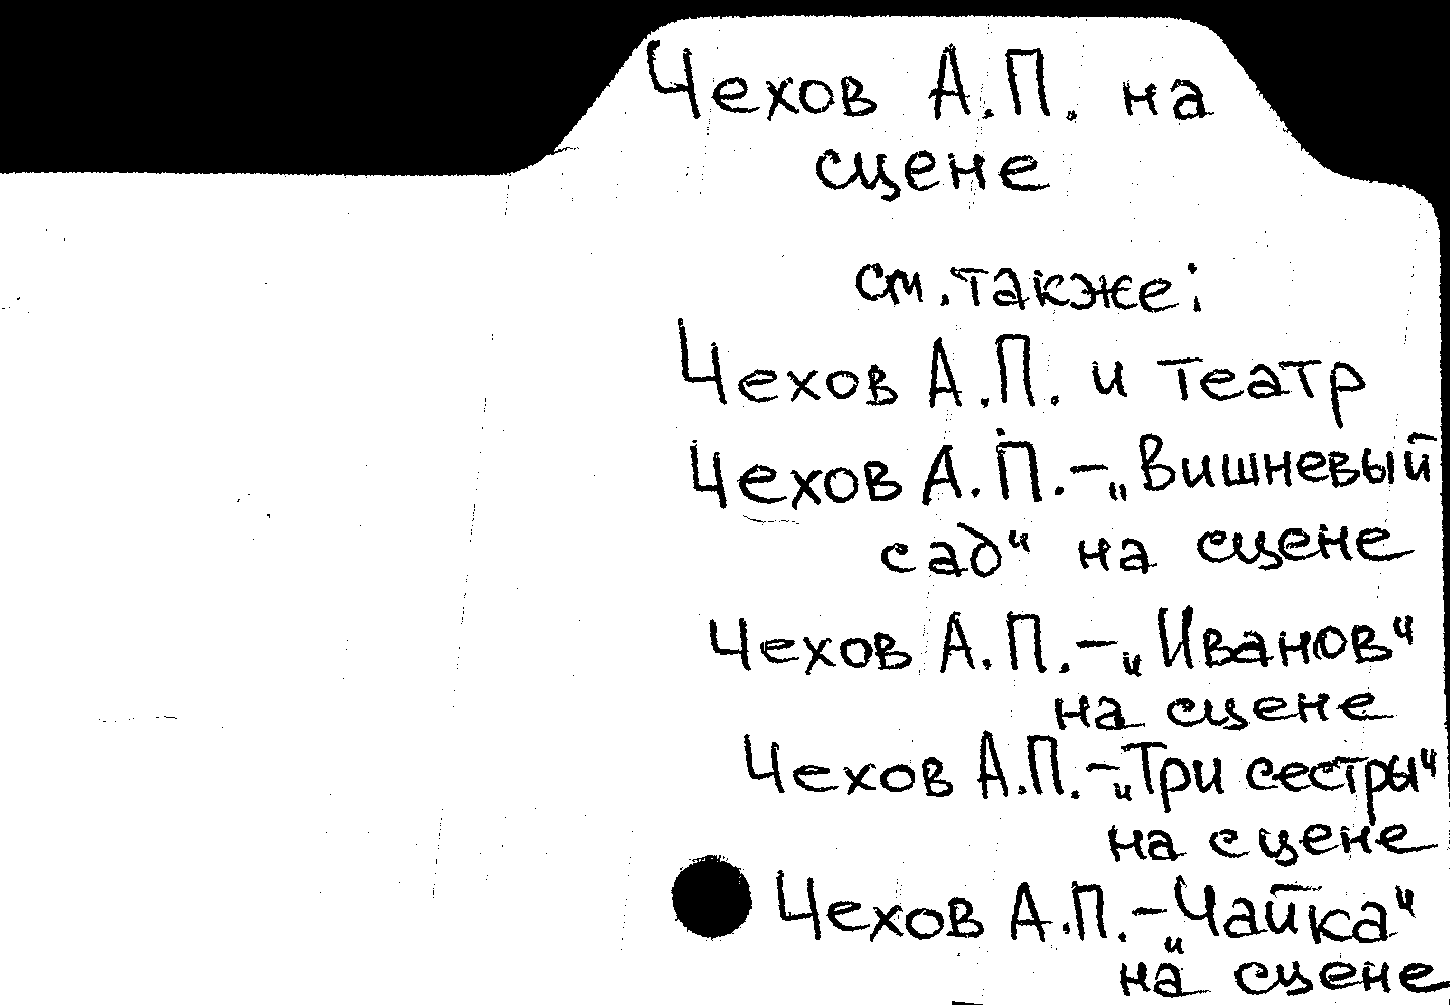 Чехов А.П. на
сцене
см. также:
Чехов А.П. и театр
Чехов А.П. – „Вишневый
сад“ на сцене
Чехов А.П. – „Иванов“
на сцене
Чехов А.П. – „Три сестры“
на сцене
Чехов А.П. – „Чайка“
на сцене